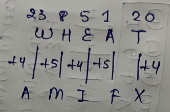 23 8 5 1 20
W H E A T
+4 | +5 | +4 | +5 | | +4
A M I F X